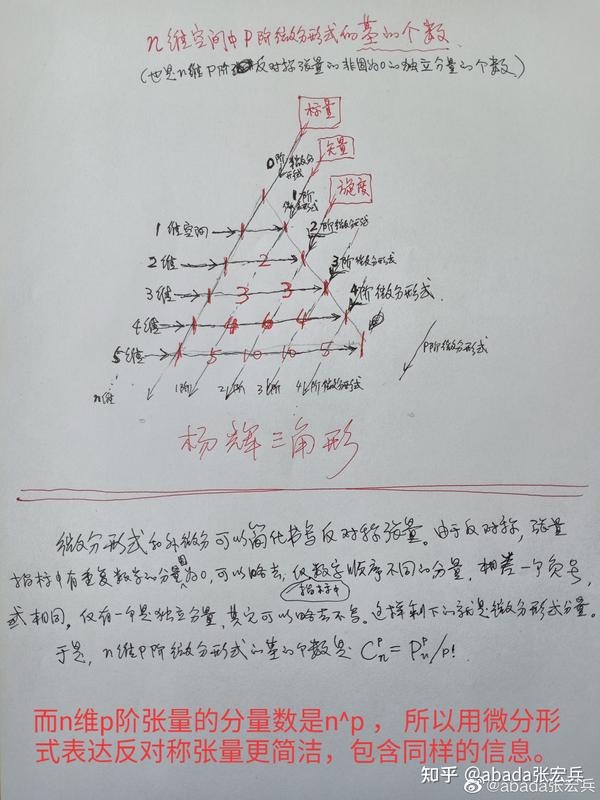 n维空间中P阶微分形式的基的个数
(也是n维P阶反对称张量的非固为0的独立分量的个数)
标量
矢量
旋度
0阶微分形式
1阶微分形式
1维空间
2阶微分形式
2维
2
3阶微分形式
3维
3 3
4阶微分形式
4维
4 6 4
5维
1 5 10 10
P阶微分形式
n维 1阶 2阶 3阶 4阶微分形式
杨辉三角形
微分形式和外微分可以简化书写反对称张量。由于反对称，张量
指标中有重复数字的分量固为0，可以略去，仅数字顺序不同的分量，相差一个负号，
指标中
或相同，仅有一个是独立分量，其它可以略去不写。这样剩下的就是微分形式分量。
于是，n维P阶微分形式的基的个数是 Cₙᵖ = Pₙᵖ/p!
而n维p阶张量的分量数是n^p ， 所以用微分形
式表达反对称张量更简洁，包含同样的信息。
知乎 @abada张宏兵
@abada张宏兵